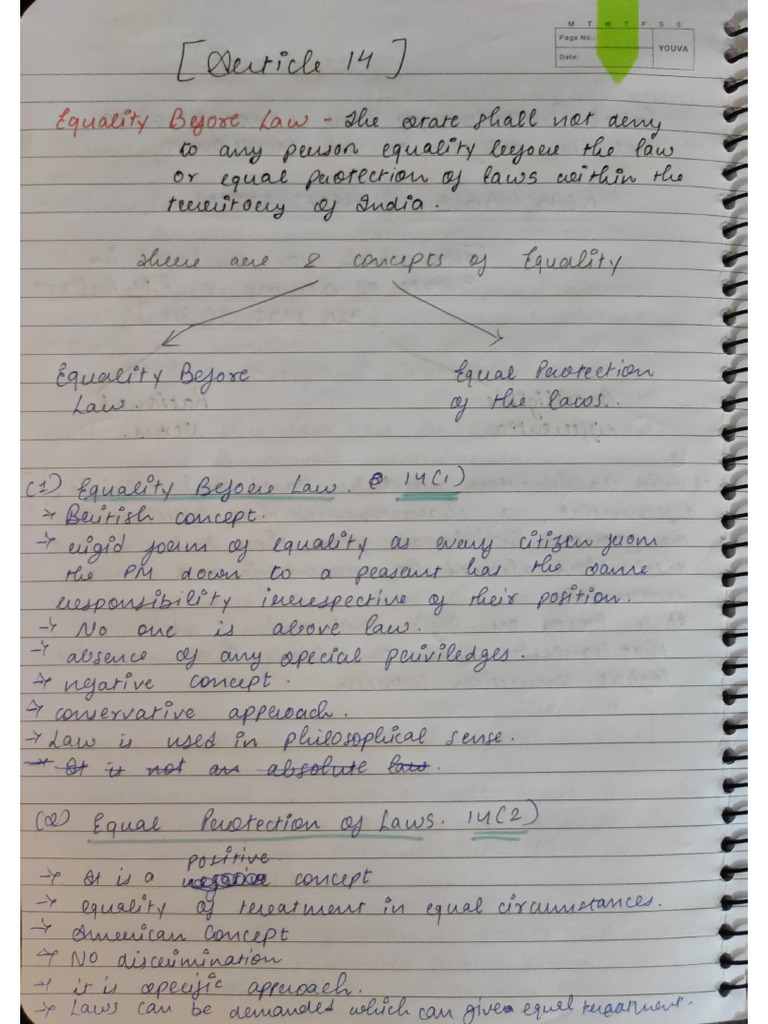 M T W T F S S
Page No.:
Date:
YOUVA
[Article 14]
Equality Before Law - The state shall not deny
to any person equality before the law
or equal protection of laws within the
territory of India.
There are 2 concepts of Equality
Equality Before
Law.
Equal Protection
of the laws.
(1) Equality Before Law. 14(1)
→ British concept.
→ rigid form of equality as every citizen from
the PM down to a peasant has the same
responsibility irrespective of their position.
→ No one is above law.
→ absence of any special priviledges.
→ negative concept.
→ conservative approach.
→ Law is used in philosophical sense.
→ It is not an absolute law.
(2) Equal Protection of Laws. 14(2)
positive
→ It is a negative concept
→ equality of treatment in equal circumstances.
→ American Concept
→ No discrimination
→ it is specific approach.
→ Laws can be demanded which can give equal treatment.